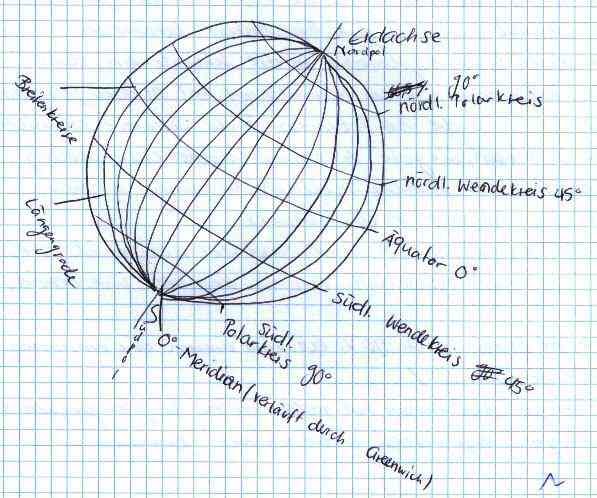 Erdachse
Nordpol
90°
nördl. Polarkreis
Breitenkreise
nördl. Wendekreis 45°
Längengrade
Äquator 0°
südl. Wendekreis 45°
Südpol
südl.
Polarkreis 90°
0°-Meridian (verläuft durch Greenwich)